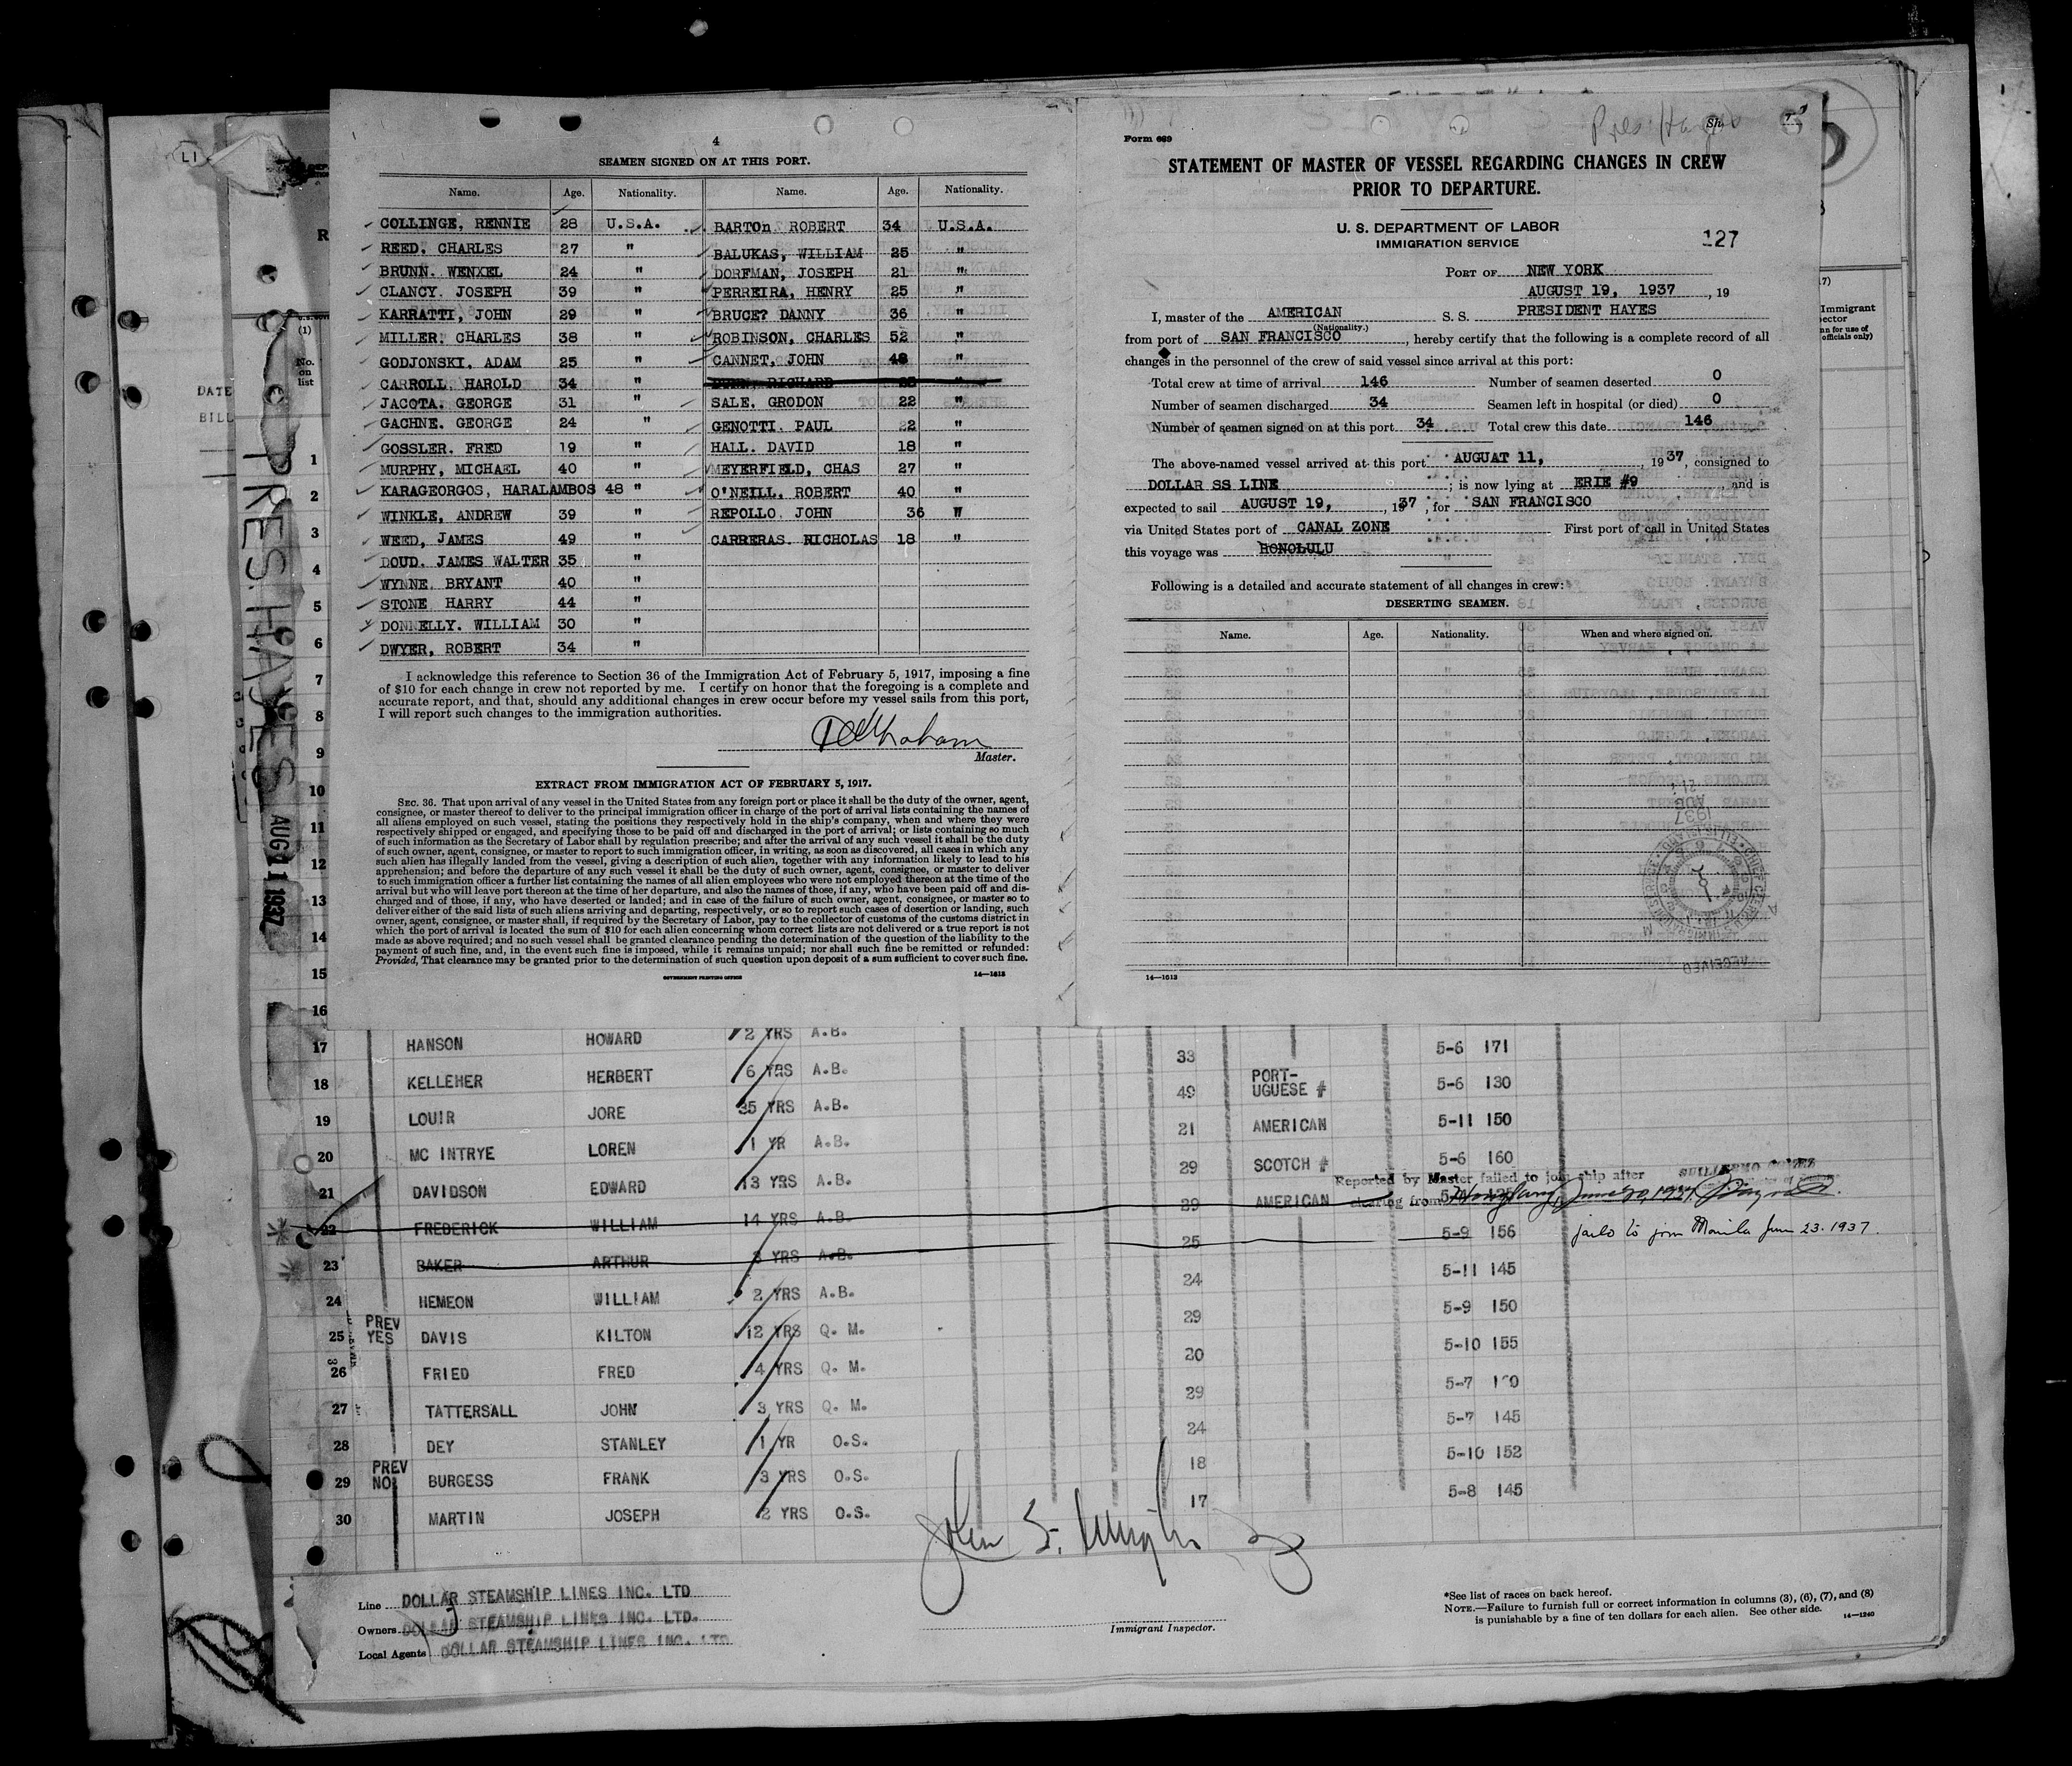 4
SEAMEN SIGNED ON AT THIS PORT.
Name. Age. Nationality. Name. Age. Nationality.
COLLINGE, RENNIE 28 U.S.A. BARTOn ROBERT 34 U.S.A.
REED, CHARLES 27 " BALUKAS, WILLIAM 25 "
BRUNN. WENXEL 24 " DORFMAN, JOSEPH 21 "
CLANCY. JOSEPH 39 " PERREIRA, HENRY 25 "
KARRATTI, JOHN 29 " BRUCE? DANNY 36 "
MILLER. CHARLES 38 " ROBINSON, CHARLES 52 "
GODJONSKI, ADAM 25 " CANNET, JOHN 48 "
CARROLL, HAROLD 34 " RICHARD "
JACOTA. GEORGE 31 " SALE. GRODON 22 "
GACHNE. GEORGE 24 " GENOTTI. PAUL 22 "
GOSSLER. FRED 19 " HALL. DAVID 18 "
MURPHY, MICHAEL 40 " MEYERFIELD, CHAS 27 "
KARAGEORGOS, HARALAMBOS 48 " O'NEILL, ROBERT 40 "
WINKLE, ANDREW 39 " REPOLLO. JOHN 36 "
WEED, JAMES 49 " CARRERAS. NICHOLAS 18 "
DOUD. JAMES WALTER 35 "
WYNNE. BRYANT 40 "
STONE HARRY 44 "
DONNELLY. WILLIAM 30 "
DWYER, ROBERT 34 "
I acknowledge this reference to Section 36 of the Immigration Act of February 5, 1917, imposing a fine
of $10 for each change in crew not reported by me. I certify on honor that the foregoing is a complete and
accurate report, and that, should any additional changes in crew occur before my vessel sails from this port,
I will report such changes to the immigration authorities.
Master.
EXTRACT FROM IMMIGRATION ACT OF FEBRUARY 5, 1917.
SEC. 36. That upon arrival of any vessel in the United States from any foreign port or place it shall be the duty of the owner, agent,
consignee, or master thereof to deliver to the principal immigration officer in charge of the port of arrival lists containing the names of
all aliens employed on such vessel, stating the positions they respectively hold in the ship's company, when and where they were
respectively shipped or engaged, and specifying those to be paid off and discharged in the port of arrival; or lists containing so much
of such information as the Secretary of Labor shall by regulation prescribe; and after the arrival of any such vessel it shall be the duty
of such owner, agent, consignee, or master to report to such immigration officer, in writing, as soon as discovered, all cases in which any
such alien has illegally landed from the vessel, giving a description of such alien, together with any information likely to lead to his
apprehension; and before the departure of any such vessel it shall be the duty of such owner, agent, consignee, or master to deliver
to such immigration officer a further list containing the names of all alien employees who were not employed thereon at the time of the
arrival but who will leave port thereon at the time of her departure, and also the names of those, if any, who have been paid off and dis-
charged and of those, if any, who have deserted or landed; and in case of the failure of such owner, agent, consignee, or master so to
deliver either of the said lists of such aliens arriving and departing, respectively, or so to report such cases of desertion or landing, such
owner, agent, consignee, or master shall, if required by the Secretary of Labor, pay to the collector of customs of the customs district in
which the port of arrival is located the sum of $10 for each alien concerning whom correct lists are not delivered or a true report is not
made as above required; and no such vessel shall be granted clearance pending the determination of the question of the liability to the
payment of such fine, and, in the event such fine is imposed, while it remains unpaid; nor shall such fine be remitted or refunded:
Provided, That clearance may be granted prior to the determination of such question upon deposit of a sum sufficient to cover such fine.
GOVERNMENT PRINTING OFFICE 14—1613
Form 689
STATEMENT OF MASTER OF VESSEL REGARDING CHANGES IN CREW
PRIOR TO DEPARTURE.
U. S. DEPARTMENT OF LABOR
IMMIGRATION SERVICE
127
PORT OF NEW YORK
AUGUST 19, 1937, 19
I, master of the AMERICAN S. S. PRESIDENT HAYES
(Nationality.)
from port of SAN FRANCISCO, hereby certify that the following is a complete record of all
changes in the personnel of the crew of said vessel since arrival at this port:
Total crew at time of arrival 146 Number of seamen deserted 0
Number of seamen discharged 34 Seamen left in hospital (or died) 0
Number of seamen signed on at this port 34 Total crew this date 146
The above-named vessel arrived at this port AUGUAT 11, 1937, consigned to
DOLLAR SS LINE; is now lying at ERIE #9 and is
expected to sail AUGUST 19, 1937, for SAN FRANCISCO
via United States port of CANAL ZONE First port of call in United States
this voyage was HONOLULU
Following is a detailed and accurate statement of all changes in crew:
DESERTING SEAMEN.
Name. Age. Nationality. When and where signed on.
14—1613
LI
DATE
BILL
PRES. HAYES
AUG 11 1937
(1)
No.
on
list
Immigrant
1
2
3
4
5
6
7
8
9
10
11
12
13
14
15
16
17 HANSON HOWARD 2 YRS A.B. 33 5-6 171
18 KELLEHER HERBERT 6 YRS A.B. 49 PORT-UGUESE # 5-6 130
19 LOUIR JORE 35 YRS A.B. 21 AMERICAN 5-11 150
20 MC INTRYE LOREN 1 YR A.B. 29 SCOTCH # 5-6 160
Reported by Master failed to join ship after
21 DAVIDSON EDWARD 13 YRS A.B. 29 AMERICAN
22 FREDERICK WILLIAM 14 YRS A.B. 25 5-9 156 fails to join Manila June 23. 1937
23 BAKER ARTHUR 3 YRS A.B. 24 5-11 145
24 HEMEON WILLIAM 2 YRS A.B. 29 5-9 150
PREV
25 YES DAVIS KILTON 12 YRS Q. M. 20 5-10 155
26 FRIED FRED 4 YRS Q. M. 29 5-7
27 TATTERSALL JOHN 3 YRS Q. M. 24 5-7 145
28 DEY STANLEY 1 YR O.S. 18 5-10 152
PREV
29 NO BURGESS FRANK 3 YRS O.S. 17 5-8 145
30 MARTIN JOSEPH 2 YRS O.S.
Line DOLLAR STEAMSHIP LINES INC. LTD
Owners DOLLAR STEAMSHIP LINES INC. LTD.
Local Agents DOLLAR STEAMSHIP LINES INC. LTD
Immigrant Inspector.
*See list of races on back hereof.
NOTE.—Failure to furnish full or correct information in columns (3), (6), (7), and (8)
is punishable by a fine of ten dollars for each alien. See other side. 14—1240